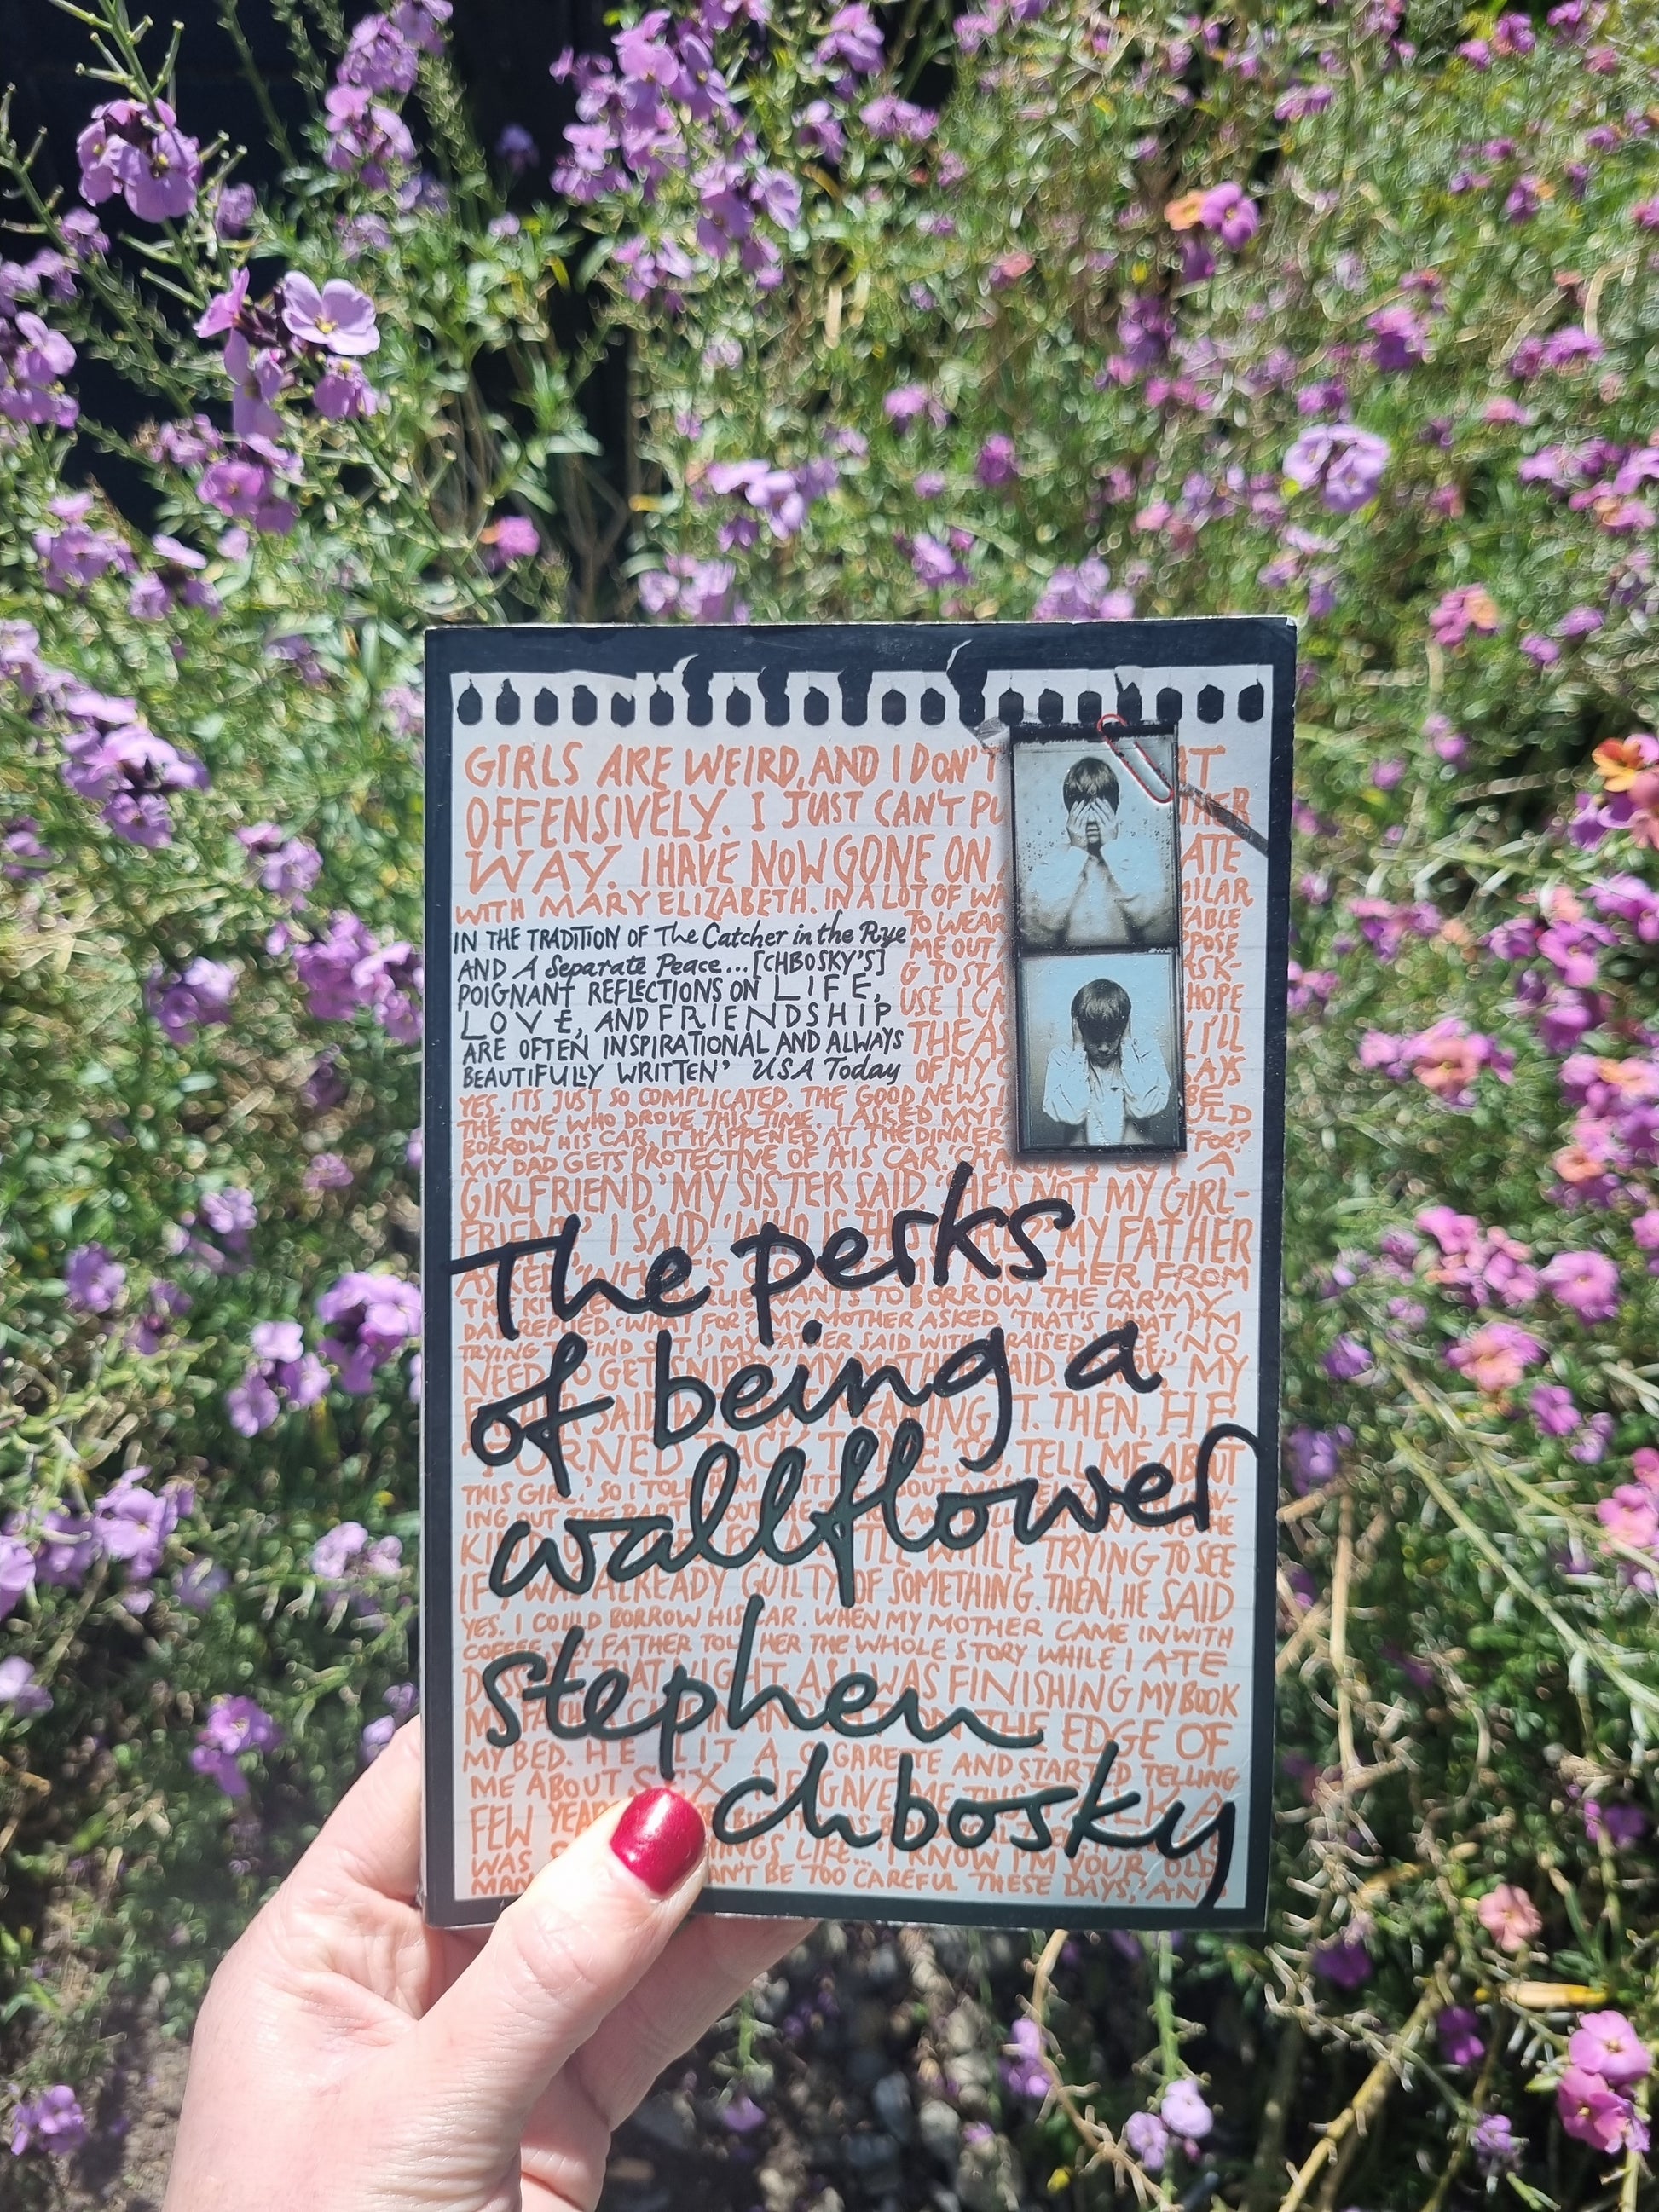 GIRLS ARE WEIRD, AND I DON'T
OFFENSIVELY. I JUST CAN'T
WAY. I HAVE NOW GONE ON
WITH MARY ELIZABETH. IN A LOT OF
IN THE TRADITION OF The Catcher in the Rye
TO WEAR
AND A Separate Peace... [CHBOSKY'S]
ME OUT
POIGNANT REFLECTIONS ON LIFE,
USE I
HOPE
LOVE, AND FRIENDSHIP
I'LL
ARE OFTEN INSPIRATIONAL AND ALWAYS
BEAUTIFULLY WRITTEN' USA Today
OF MY
YES. ITS JUST SO COMPLICATED. THE GOOD NEWS
BE
THE ONE WHO DROVE THIS TIME. I ASKED MY
BORROW HIS CAR. IT HAPPENED AT THE DINNER
FOR?
MY DAD GETS PROTECTIVE OF HIS CAR.
A
GIRLFRIEND,' MY SISTER SAID. 'SHE'S NOT MY GIRL-
I SAID. MY FATHER
The perks
FROM
TO BORROW THE CAR' MY
DAD REPLIED. 'WHAT FOR?' MY MOTHER ASKED. 'THAT'S WHAT I'M
TRYING FIND OUT' MY FATHER SAID WITH RAISED 'NO
of being a
NEED TO GET SNIPPY,' MY SAID. MY
SAID IT. THEN, HE
TURNED BACK TELL ME ABOUT
wallflower
THIS GIRL.' SO I
KIND OF WHILE, TRYING TO SEE
IF ALREADY GUILTY OF SOMETHING. THEN, HE SAID
YES. I COULD BORROW HIS CAR. WHEN MY MOTHER CAME IN WITH
COFFEE, MY FATHER TOLD HER THE WHOLE STORY WHILE I ATE
stephen
THAT NIGHT AS I WAS FINISHING MY BOOK
ON THE EDGE OF
MY BED. HE LIT A CIGARETTE AND STARTED TELLING
ME ABOUT SEX. HE GAVE ME THIS TALK A
chbosky
FEW
WAS LIKE... 'I KNOW I'M YOUR OLD
MAN CAN'T BE TOO CAREFUL THESE DAYS,' AND